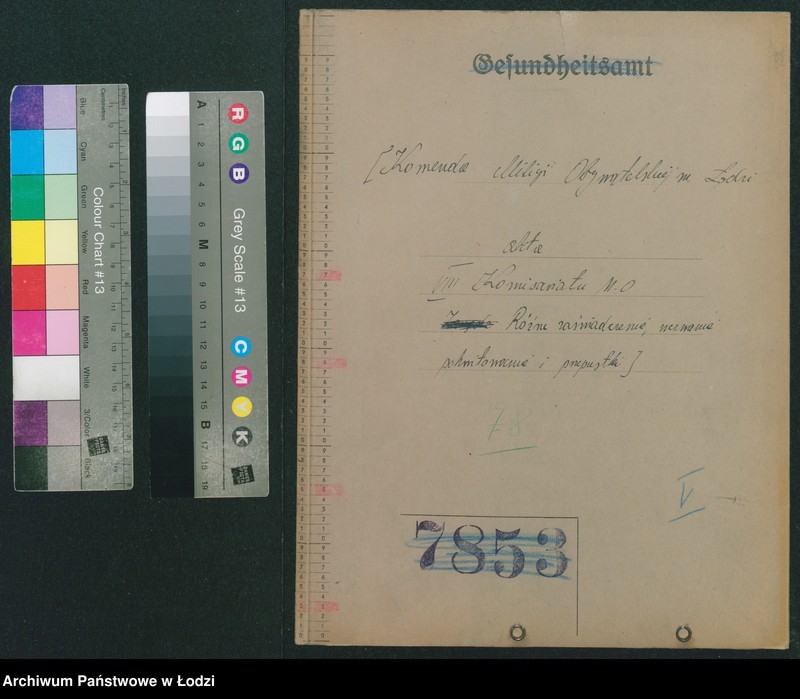 Gesundheitsamt
[Komenda Milicji Obywatelskiej w Łodzi
akta
VIII Komisariatu M.O
Różne zaświadczenia, wezwania
pokwitowania i przepustki]
78
V
7853
Colour Chart #13
Blue
Cyan
Green
Yellow
Red
Magenta
White
3/Color
Black
Grey Scale #13
R
G
B
C
M
Y
K
A 1 2 3 4 5 6 M 8 9 10 11 12 13 14 15 B 17 18 19
Archiwum Państwowe w Łodzi